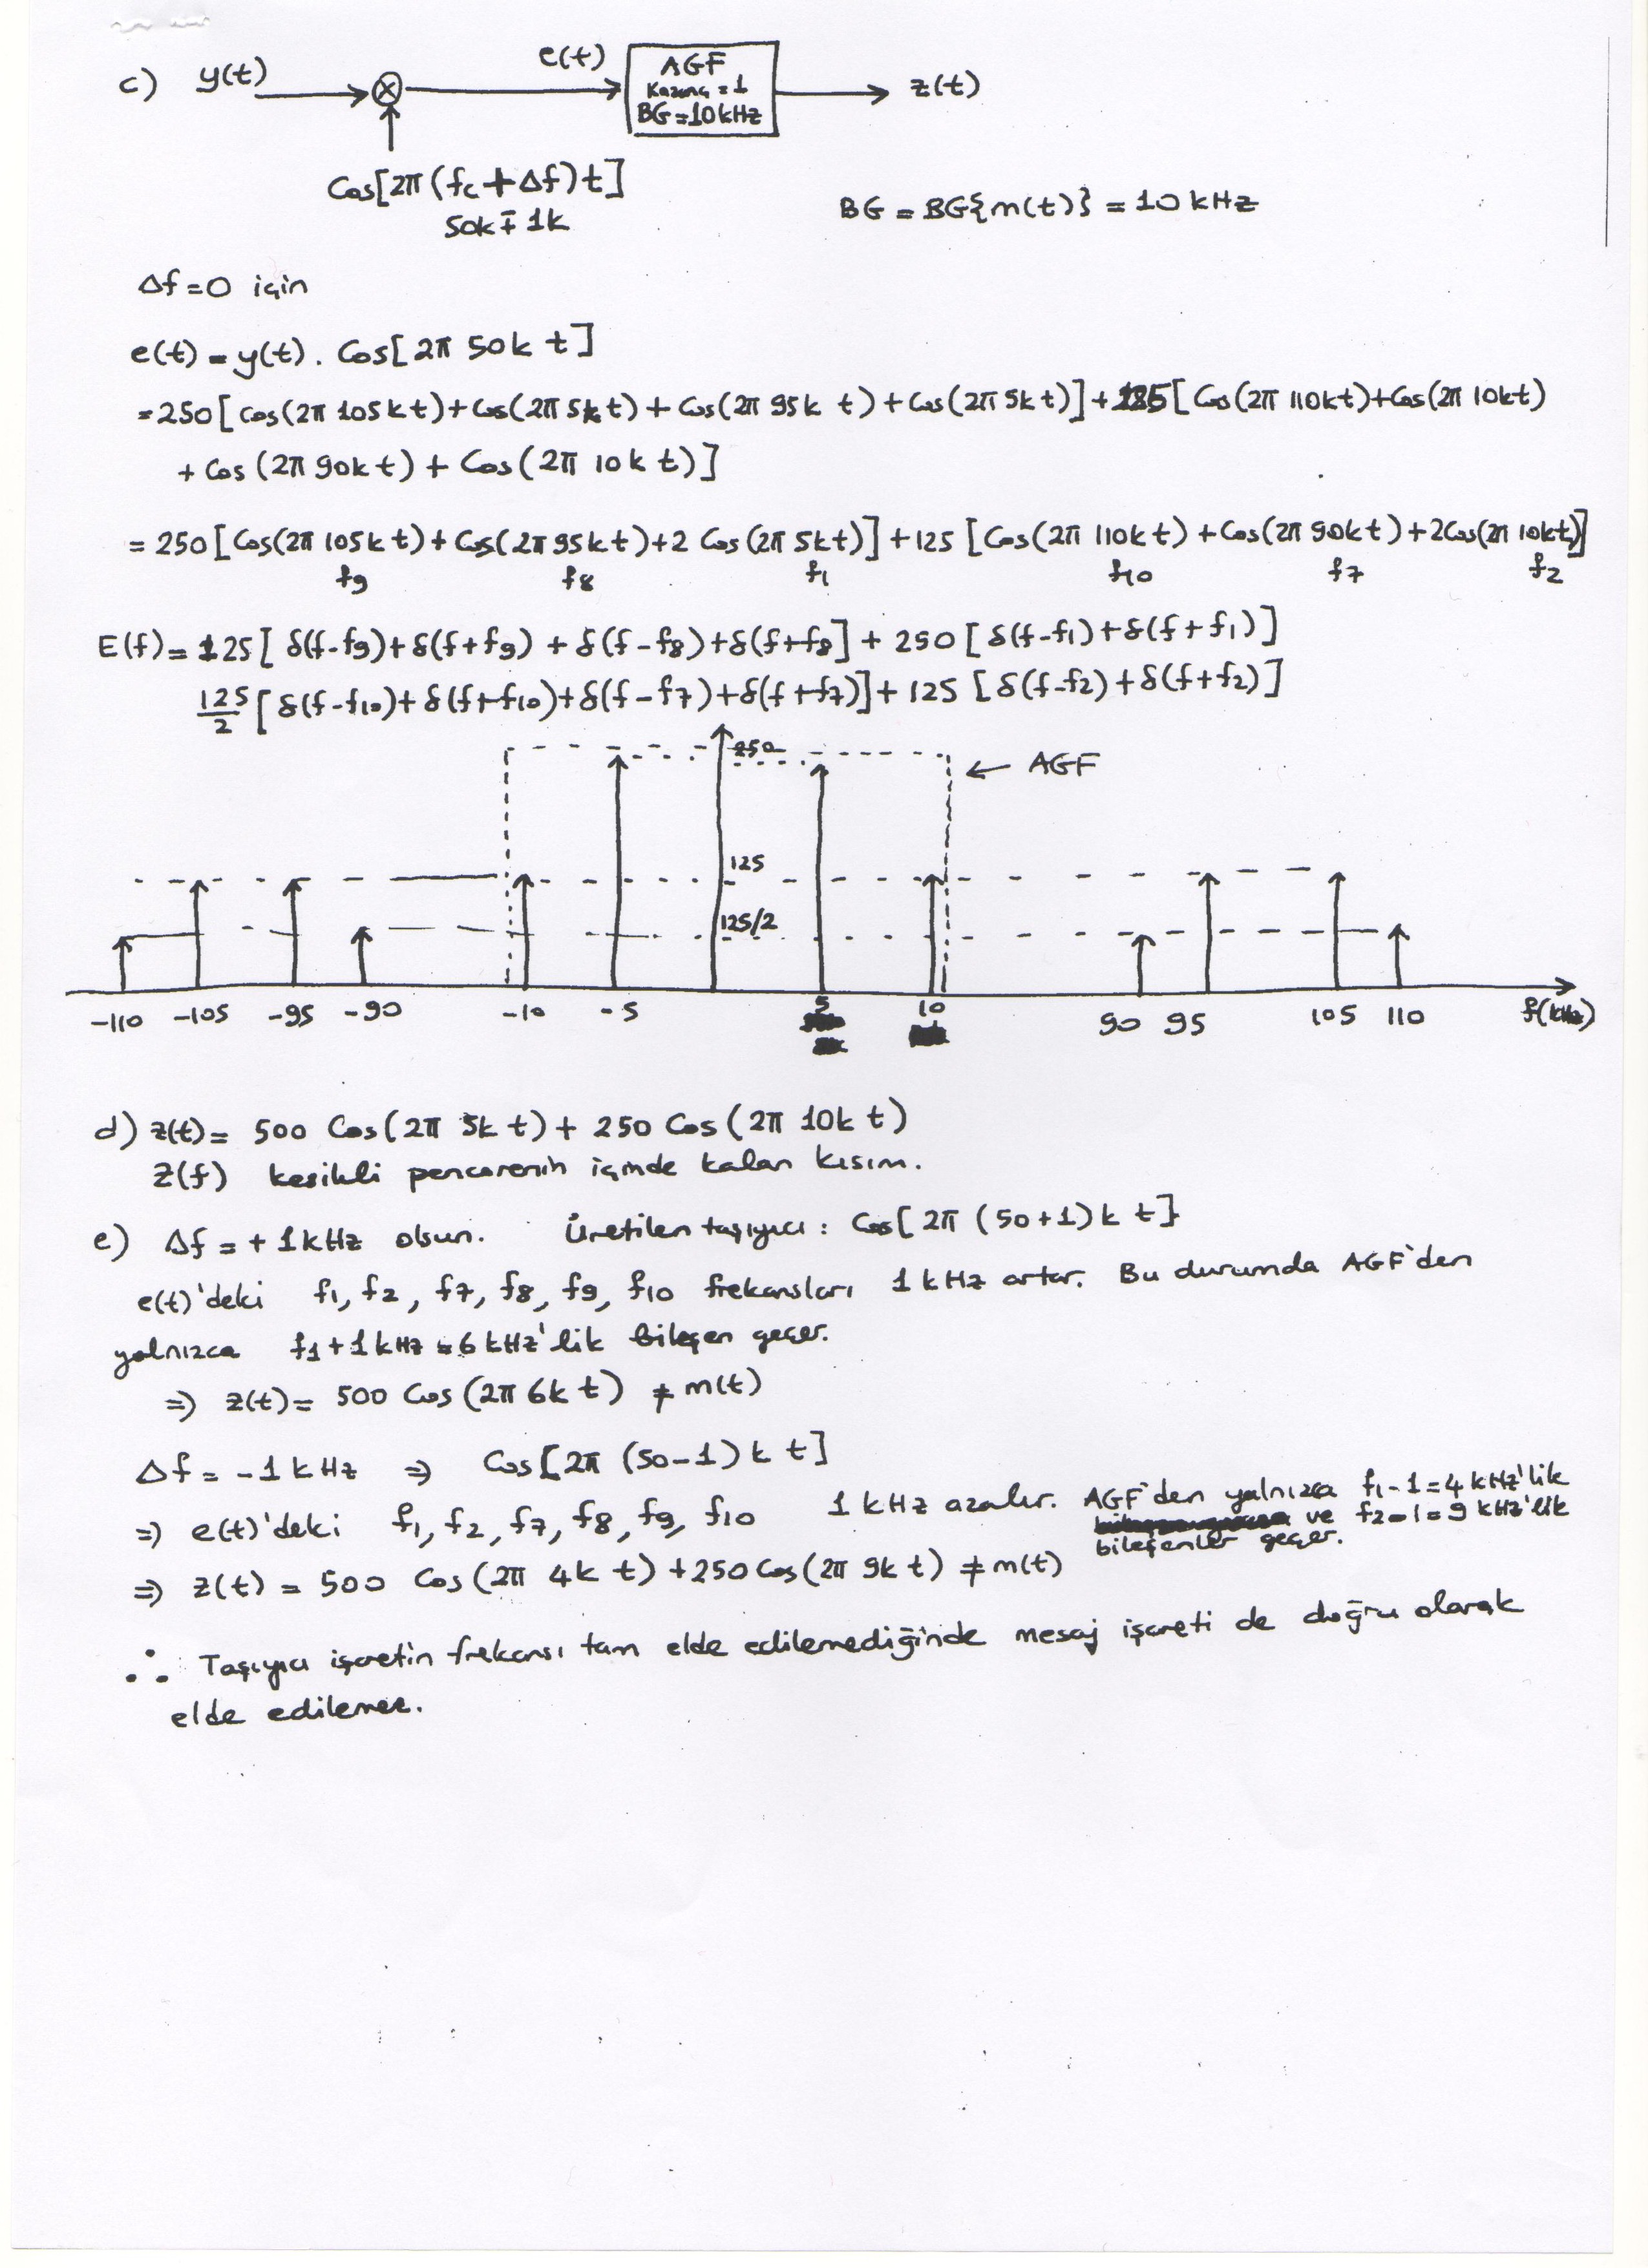 c) y(t) ⊗ e(t) AGF z(t)
Kazanç = 1
BG=10kHz
Cos[2π(fc+Δf)t]
50k∓1k
BG = BG{m(t)} = 10 kHz
Δf=0 için
e(t) = y(t) . Cos[2π 50k t]
=250[cos(2π 105k t)+Cos(2π 5k t) + Cos(2π 95k t)+Cos(2π 5k t)] + 125[Cos(2π 110kt)+Cos(2π 10kt)
+ Cos(2π 90k t) + Cos(2π 10k t)]
= 250[Cos(2π 105k t)+Cos(2π 95k t)+2 Cos(2π 5kt)] +125 [Cos(2π 110k t) +Cos(2π 90kt)+2Cos(2π 10kt)]
f9 f8 f1 f10 f7 f2
E(f)= 125[ δ(f-f9)+δ(f+f9) + δ(f-f8)+δ(f+f8] + 250 [δ(f-f1)+δ(f+f1)]
125/2 [δ(f-f10)+δ(f+f10)+δ(f-f7)+δ(f+f7)]+ 125 [δ(f-f2)+δ(f+f2)]
250
← AGF
125
125/2
-110 -105 -95 -90 -10 -5 5 10 90 95 105 110 f(kHz)
d) z(t)= 500 Cos(2π 5k t)+ 250 Cos(2π 10k t)
Z(f) kesikli pencerenin içinde kalan kısım.
e) Δf = +1kHz olsun. Üretilen taşıyıcı : Cos[2π (50+1)k t]
e(t)'deki f1, f2, f7, f8, f9, f10 frekansları 1 kHz artar. Bu durumda AGF'den
yalnızca f1+1kHz=6kHz'lik bileşen geçer.
⇒ z(t)= 500 Cos(2π 6k t) ≠ m(t)
Δf = -1kHz ⇒ Cos[2π (50-1)k t]
⇒ e(t)'deki f1, f2, f7, f8, f9, f10 1 kHz azalır. AGF'den yalnızca f1-1=4kHz'lik
ve f2-1=9 kHz'lik
bileşenler geçer.
⇒ z(t) = 500 Cos(2π 4k t) +250 Cos(2π 9k t) ≠ m(t)
∴ Taşıyıcı işaretin frekansı tam elde edilemediğinde mesaj işareti de doğru olarak
elde edilemez.